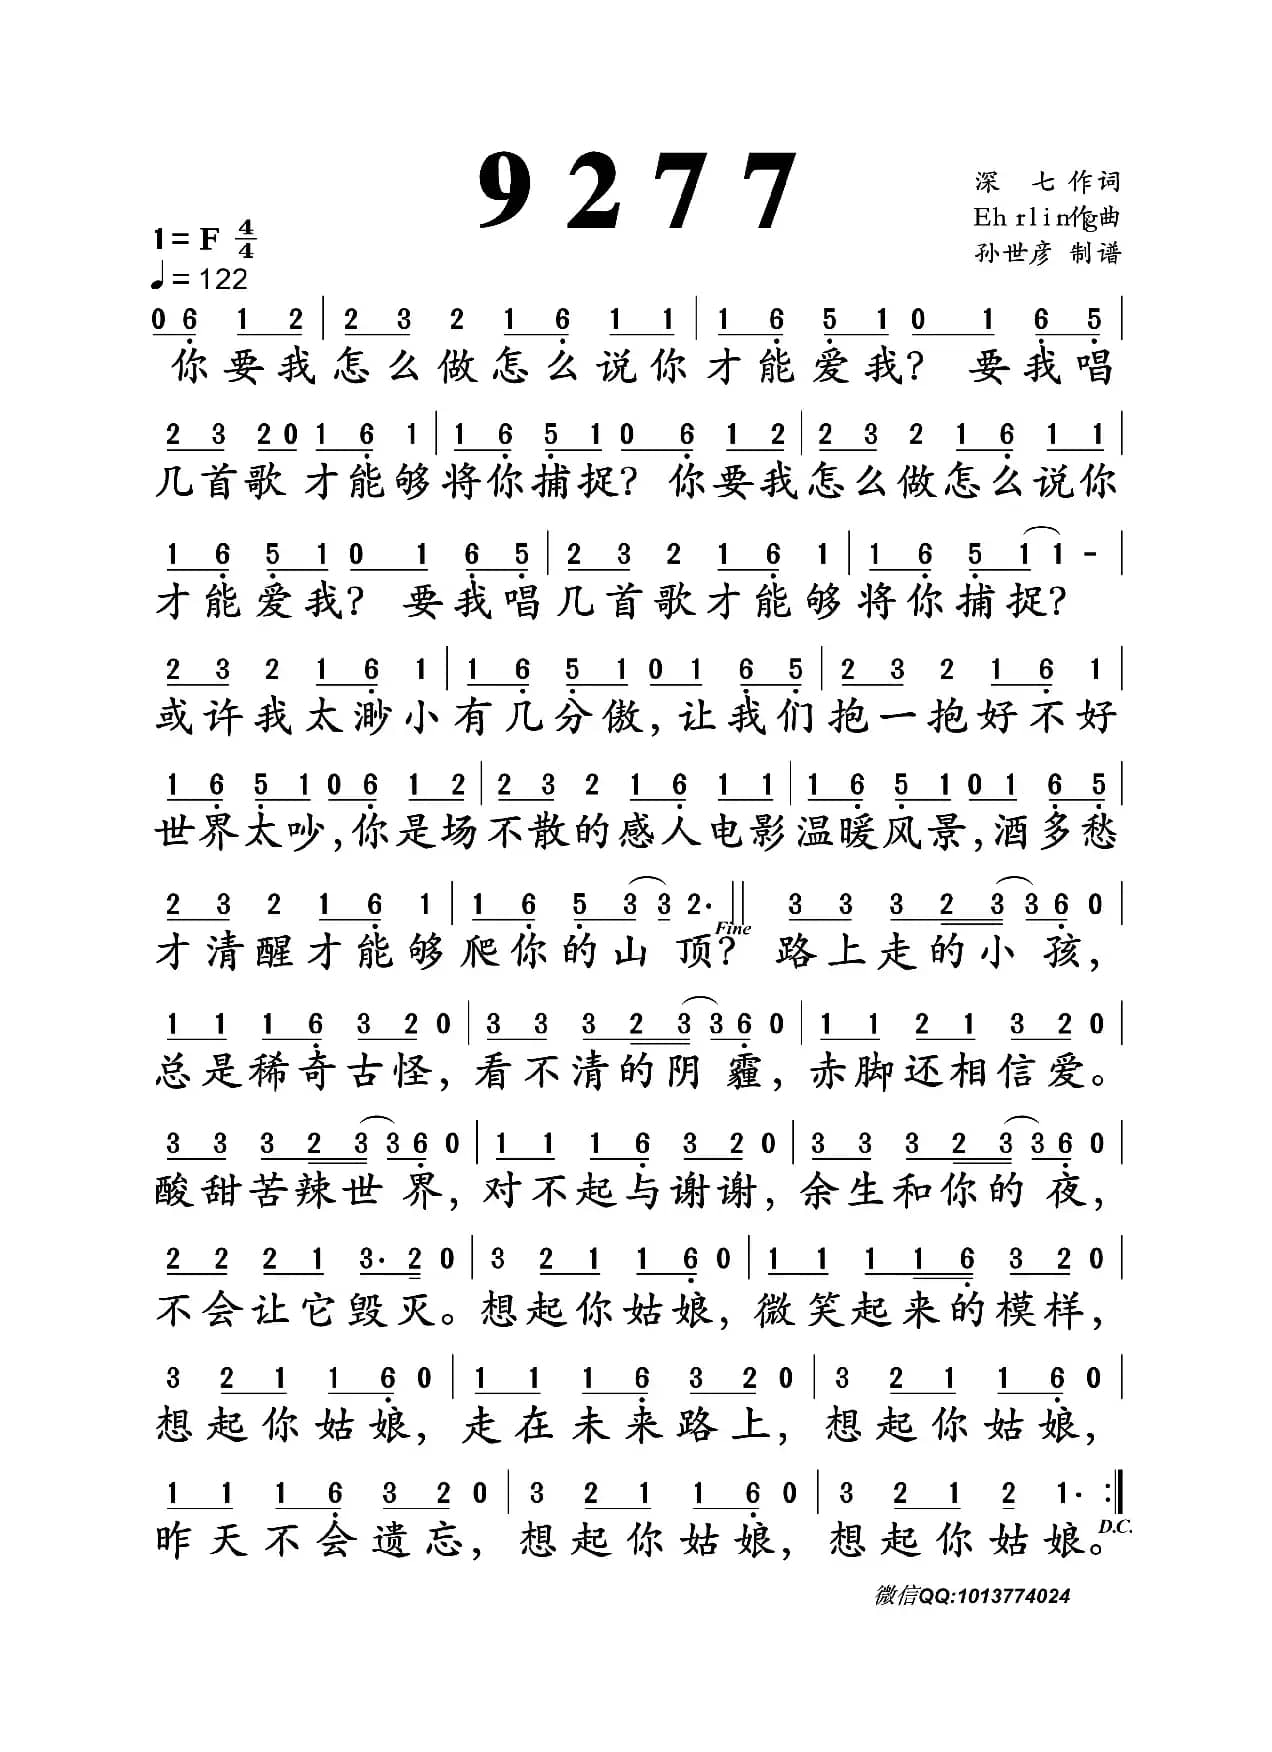 9277
深 七 作词
1=F 4/4
Ehrling作曲
♩=122
孙世彦 制谱
0 6 1 2 | 2 3 2 1 6 1 1 | 1 6 5 1 0 1 6 5 |
你要我怎么做怎么说你才能爱我? 要我唱
2 3 2 0 1 6 1 | 1 6 5 1 0 6 1 2 | 2 3 2 1 6 1 1 |
几首歌 才能够将你捕捉? 你要我怎么做怎么说你
1 6 5 1 0 1 6 5 | 2 3 2 1 6 1 | 1 6 5 1 1 - |
才能爱我? 要我唱几首歌才能够将你捕捉?
2 3 2 1 6 1 | 1 6 5 1 0 1 6 5 | 2 3 2 1 6 1 |
或许我太渺小有几分傲,让我们抱一抱好不好
1 6 5 1 0 6 1 2 | 2 3 2 1 6 1 1 | 1 6 5 1 0 1 6 5 |
世界太吵,你是场不散的感人电影温暖风景,酒多愁
2 3 2 1 6 1 | 1 6 5 3 3 2· || 3 3 3 2 3 3 6 0 |
Fine
才清醒才能够爬你的山 顶? 路上走的小 孩,
1 1 1 6 3 2 0 | 3 3 3 2 3 3 6 0 | 1 1 2 1 3 2 0 |
总是稀奇古怪,看不清的阴 霾,赤脚还相信爱。
3 3 3 2 3 3 6 0 | 1 1 1 6 3 2 0 | 3 3 3 2 3 3 6 0 |
酸甜苦辣世 界,对不起与谢谢,余生和你的 夜,
2 2 2 1 3· 2 0 | 3 2 1 1 6 0 | 1 1 1 1 6 3 2 0 |
不会让它毁灭。想起你姑娘,微笑起来的模样,
3 2 1 1 6 0 | 1 1 1 6 3 2 0 | 3 2 1 1 6 0 |
想起你姑娘,走在未来路上,想起你姑娘,
1 1 1 6 3 2 0 | 3 2 1 1 6 0 | 3 2 1 2 1· :||
D.C.
昨天不会遗忘,想起你姑娘,想起你姑娘。
微信QQ:1013774024